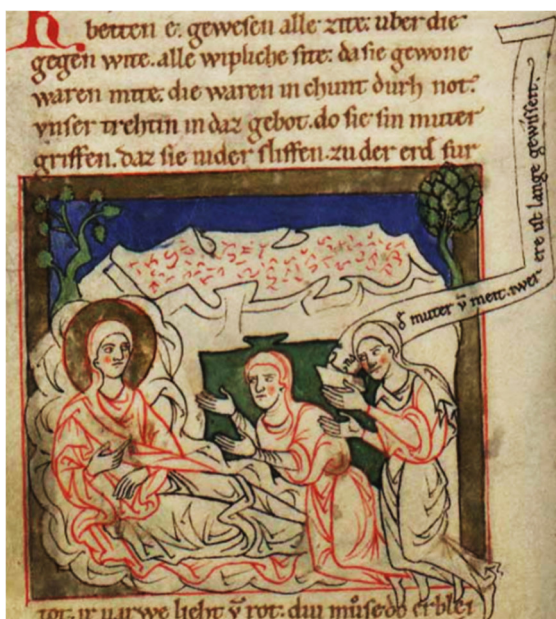 betten e: gewesen alle zite: uber die
gegen wite. alle wipliche site: da sie gewone
waren mite: die waren in chunt durh not:
vnser trehtin in daz gebot. do sie sin muter
griffen. daz sie nider sliffen. zu der erd fur
muter vñ meit. swer ere ist lange gewisseit.
tot. ir varwe lieht vñ rot: diu